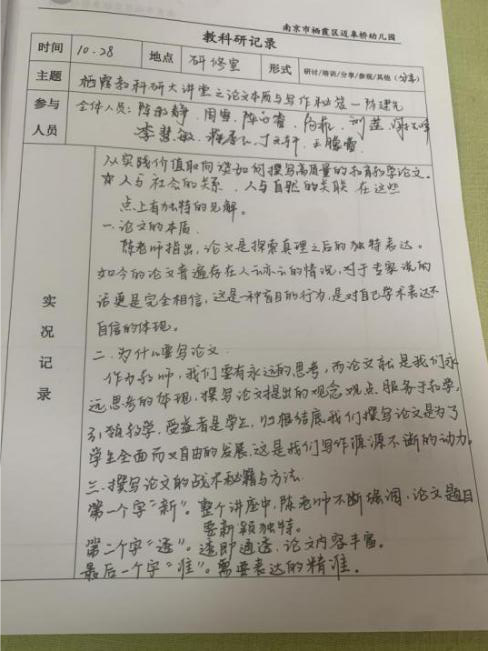 南京市栖霞区迈皋桥幼儿园
教科研记录
时间 10.28 地点 研修室 形式 研讨/培训/分享/参观/其他(分享)
主题 栖霞教科研大讲堂之论文本质与写作秘笈—陈建先
参与人员 全体人员:陈
李慧敏
从实践价值取向谈如何撰写高质量的教育教学论文。
人与社会的关系、人与自然的关联 在这些
点上有独特的见解。
一.论文的本质.
陈老师指出,论文是探索真理之后的独特表达。
如今的论文普遍存在人云亦云的情况,对于专家说的
话更是完全相信,这是一种盲目的行为,是对自己学术表达不
自信的体现。
实况记录
二.为什么要写论文.
作为教师,我们要有永远的思考,而论文就是我们永
远思考的体现,撰写论文提出的观念、观点,服务于教学,
引领教学,受益者是学生,归根结底我们撰写论文是为了
学生全面而又自由的发展,这是我们写作源源不断的动力。
三.撰写论文的战术秘籍与方法.
第一个字"新"。整个讲座中,陈老师不断强调,论文题目
要新颖独特。
第二个字"透"。透即通透,论文内容丰富。
最后一个字"准"。需要表达的精准。